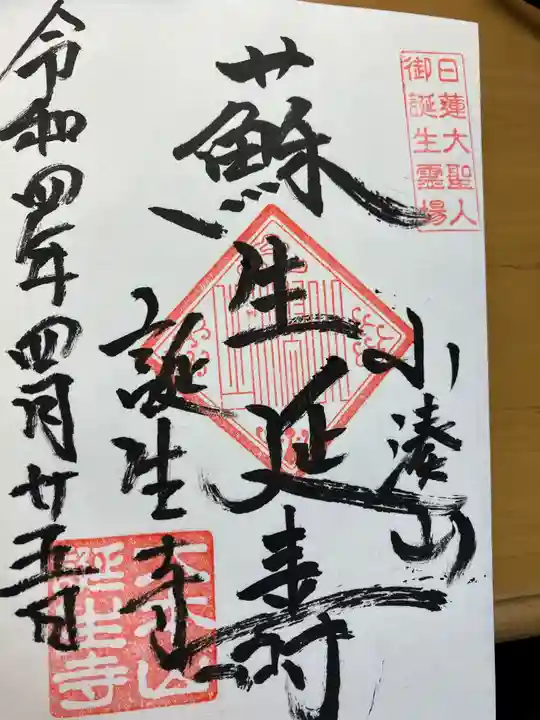 日蓮大聖人
御誕生霊場
小湊山
蘇生延寿
誕生寺
令和四年四月廿五日
誕生寺